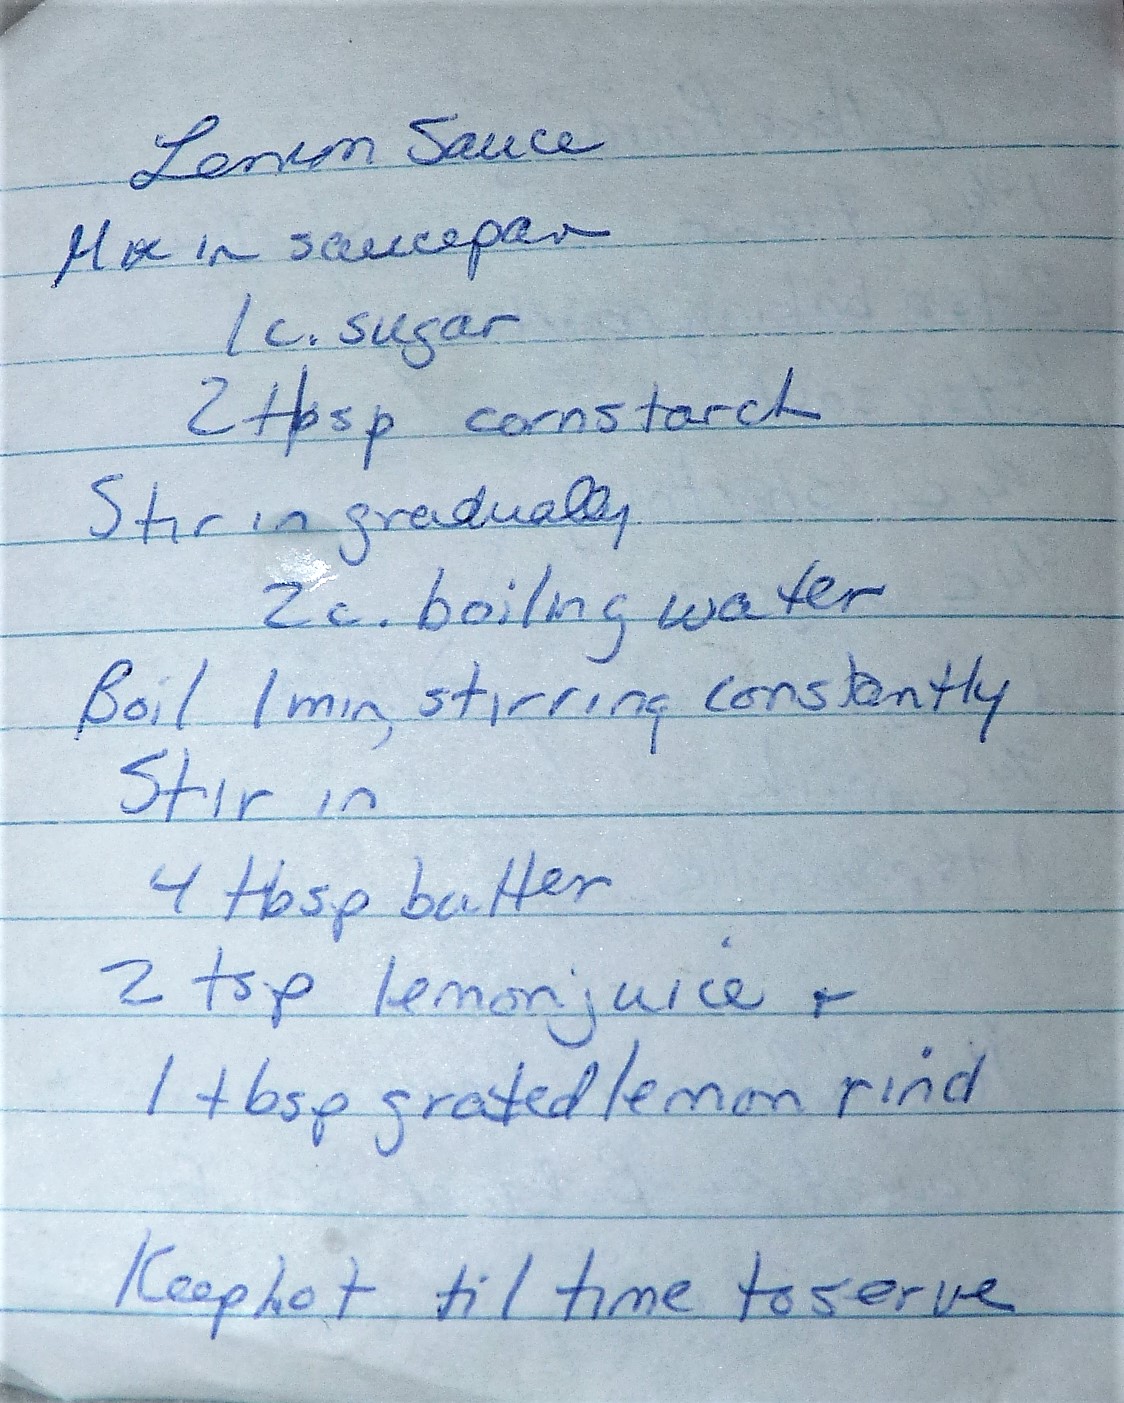 Lemon Sauce
Mix in saucepan
1 c. sugar
2 tbsp cornstarch
Stir in gradually
2 c. boiling water
Boil 1 min, stirring constantly
Stir in
4 tbsp butter
2 tsp lemon juice +
1 tbsp grated lemon rind
Keep hot til time to serve